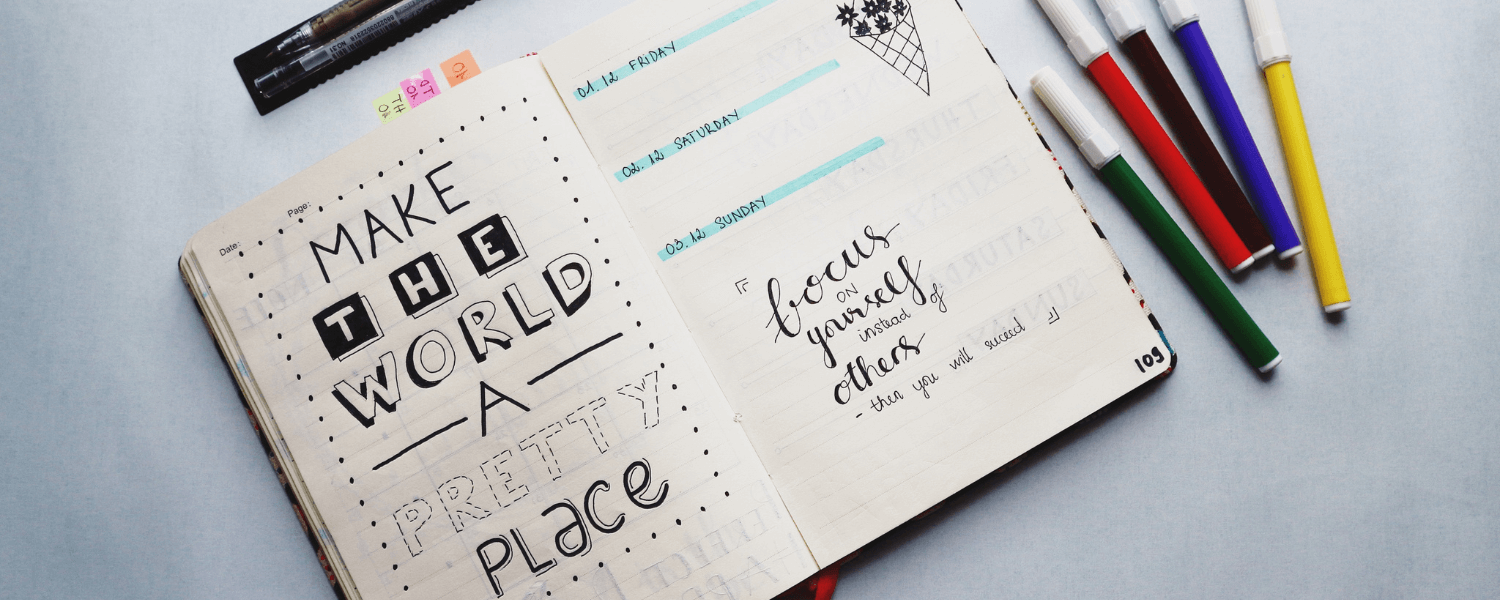 Date:
Page:
MAKE
THE
WORLD
A
PRETTY
PLace
01.12 FRIDAY
02.12 SATURDAY
03.12 SUNDAY
focus
on
yourself
instead of
others
- then you will succeed
109